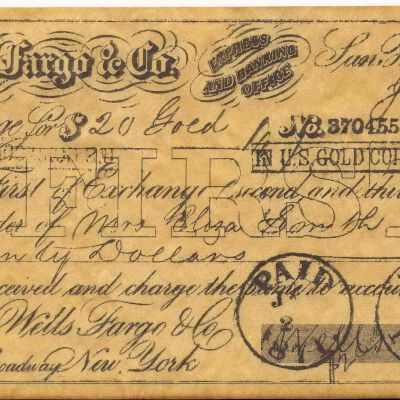 Fargo & Co.
EXPRESS
AND BANKING
OFFICE
San
for $20 Gold
No. 370455
IN U.S. GOLD CO
FIRST
First of Exchange (second and thi
der of Mrs Eliza Smith
nty Dollars
ceived and charge the same to accou
PAID
Wells, Fargo & Co
roadway New York